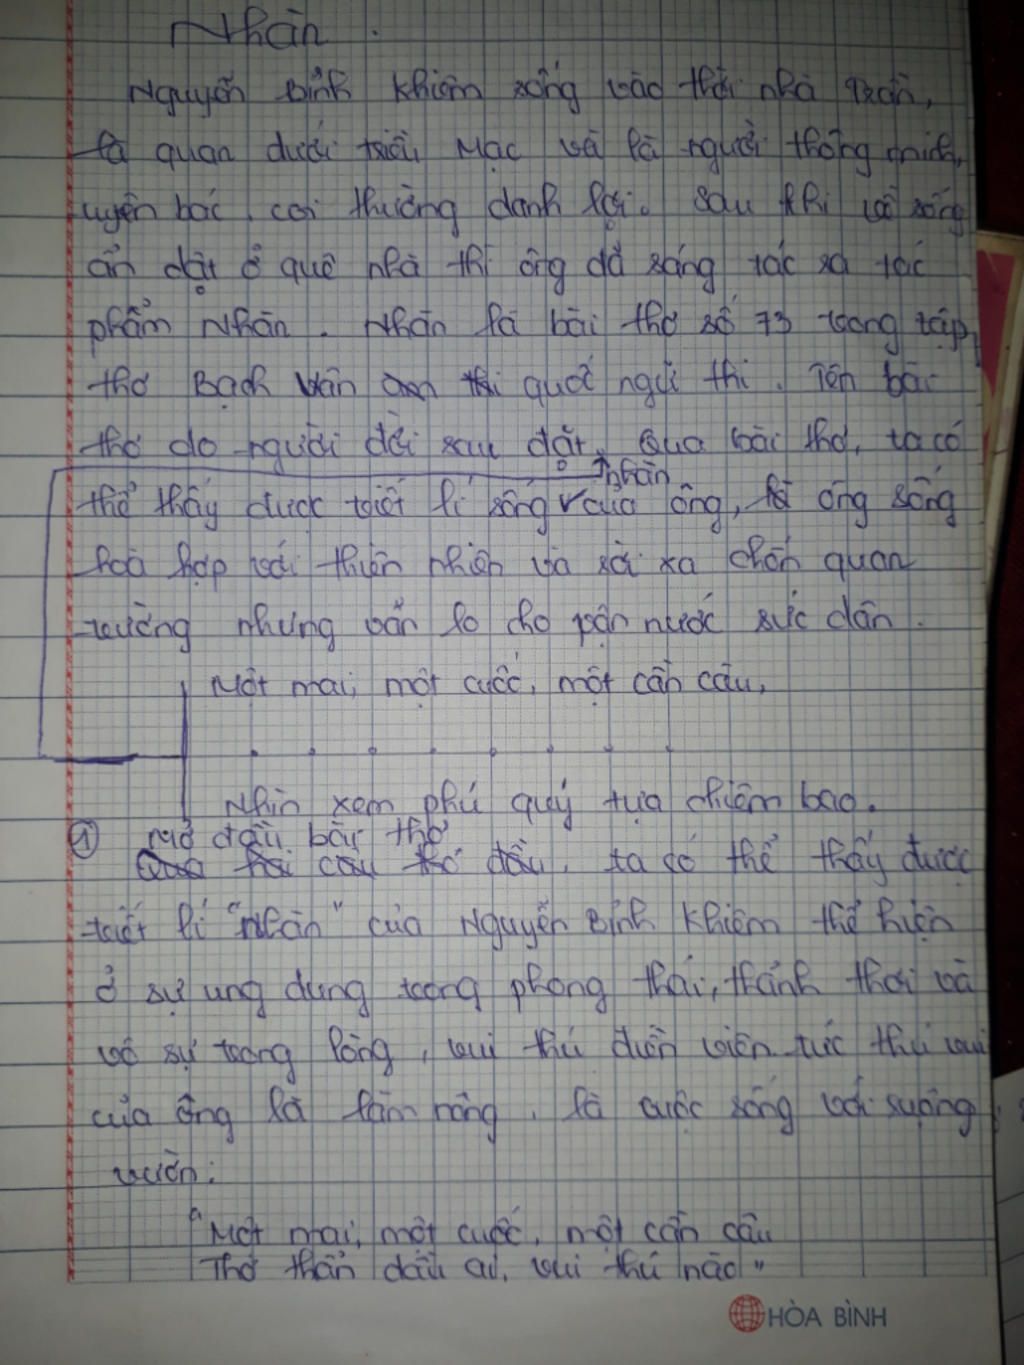 Nhàn.
Nguyễn Bỉnh Khiêm sống vào thời nhà Trần,
là quan dưới triều Mạc và là người thông minh,
uyên bác, coi thường danh lợi. Sau khi về sống
ẩn dật ở quê nhà thì ông đã sáng tác ra tác
phẩm Nhàn. Nhàn là bài thơ số 73 trong tập
thơ Bạch Vân am thi quốc ngữ thi. Tên bài
thơ do người đời sau đặt. Qua bài thơ, ta có
nhàn
thể thấy được triết lí sống của ông, là ông sống
hoà hợp với thiên nhiên và rời xa chốn quan
trường nhưng vẫn lo cho vận nước sức dân.
Một mai, một cuốc, một cần câu,
Nhìn xem phú quý tựa chiêm bao.
① Mở đầu bài thơ
đầu, ta có thể thấy được
triết lí "nhàn" của Nguyễn Bỉnh Khiêm thể hiện
ở sự ung dung trong phong thái, thảnh thơi và
vô sự trong lòng, vui thú điền viên tức thú vui
của ông là làm nông, là cuộc sống với ruộng
vườn:
"Một mai, một cuốc, một cần câu
Thơ thẩn dầu ai, vui thú nào"
HÒA BÌNH